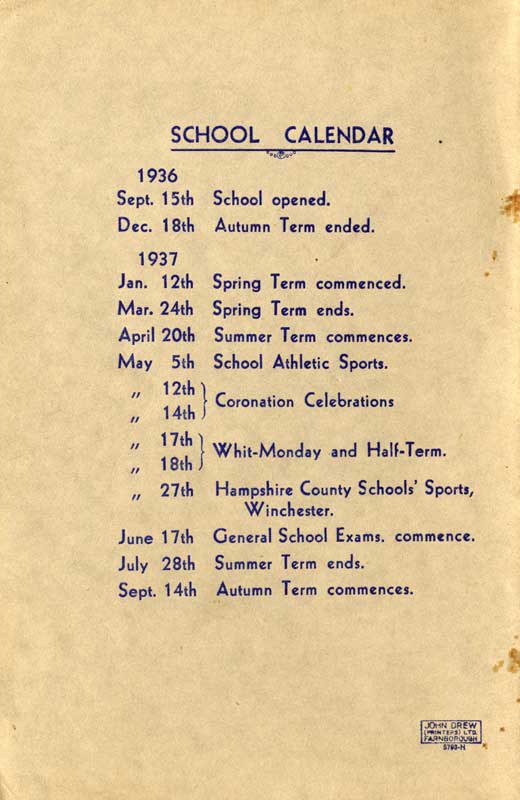 SCHOOL CALENDAR
1936
Sept. 15th School opened.
Dec. 18th Autumn Term ended.
1937
Jan. 12th Spring Term commenced.
Mar. 24th Spring Term ends.
April 20th Summer Term commences.
May 5th School Athletic Sports.
„ 12th
„ 14th } Coronation Celebrations
„ 17th
„ 18th } Whit-Monday and Half-Term.
„ 27th Hampshire County Schools' Sports,
Winchester.
June 17th General School Exams. commence.
July 28th Summer Term ends.
Sept. 14th Autumn Term commences.
JOHN DREW
(PRINTERS) LTD.
FARNBOROUGH
5793-H